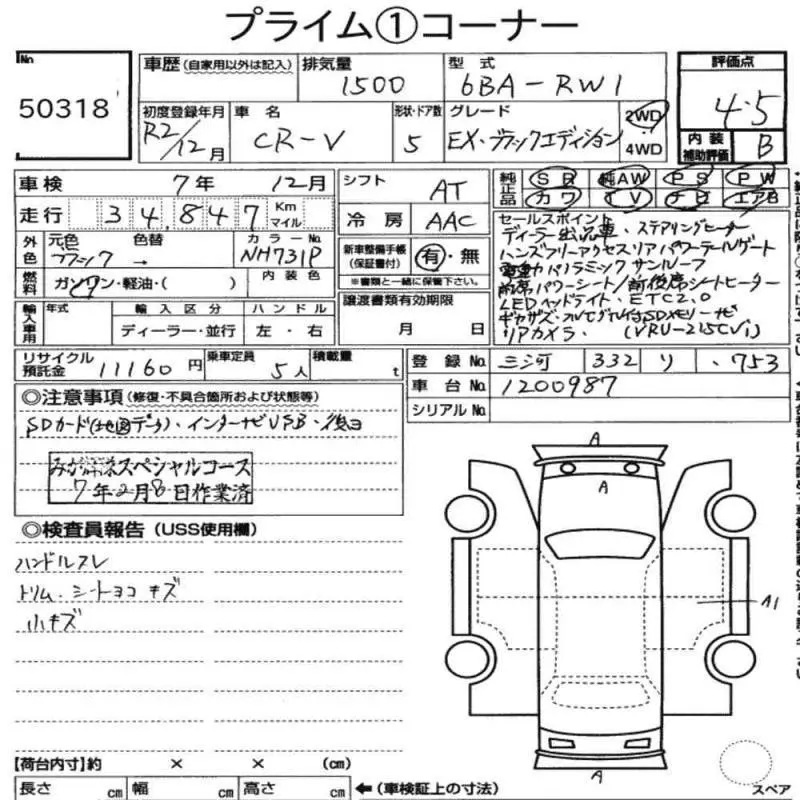 プライム①コーナー
No 50318
車歴 (自家用以外は記入) 排気量 1500 型式 6BA-RW1 評価点 4.5
初度登録年月 R2/12月 車名 CR-V 形状・ドア数 5 グレード EX・ブラックエディション 2WD 4WD 内装補助評価 B
車検 7年 12月 シフト AT 純正品 SR 純AW PS PW
走行 34,847 Km マイル 冷房 AAC カワ TV ナビ エアB
外色 元色 ブラック → 色替 カラーNo. NH731P 新車整備手帳(保証書付) 有・無
※書類と一緒に保管下さい。
燃料 ガソリン・軽油・( ) 内装色
セールスポイント
ディーラー出品車、ステアリングヒーター
ハンズフリーアクセスリアパワーテールゲート
電動パノラミックサンルーフ
前席パワーシート/前後席シートヒーター
LEDヘッドライト、ETC2.0
ギャザズ・フルセグTV付SDメモリーナビ
リアカメラ (VRU-215CVi)
輸入車用 年式 輸入区分 ハンドル 譲渡書類有効期限
ディーラー・並行 左・右 月 日
リサイクル預託金 11160円 乗車定員 5人 積載量 t
登録No. 三河 332 リ ・753
車台No. 1200987
シリアルNo.
◎注意事項 (修復・不具合箇所および状態等)
SDカード(地図データ)、インターナビUSB・後日
スペシャルコース
7年2月8日作業済
◎検査員報告 (USS使用欄)
ハンドルスレ
トリム、シートヨコ キズ
小キズ
A
A
A1
A
【荷台内寸】約 × × (cm)
長さ cm 幅 cm 高さ cm ← (車検証上の寸法)
スペア